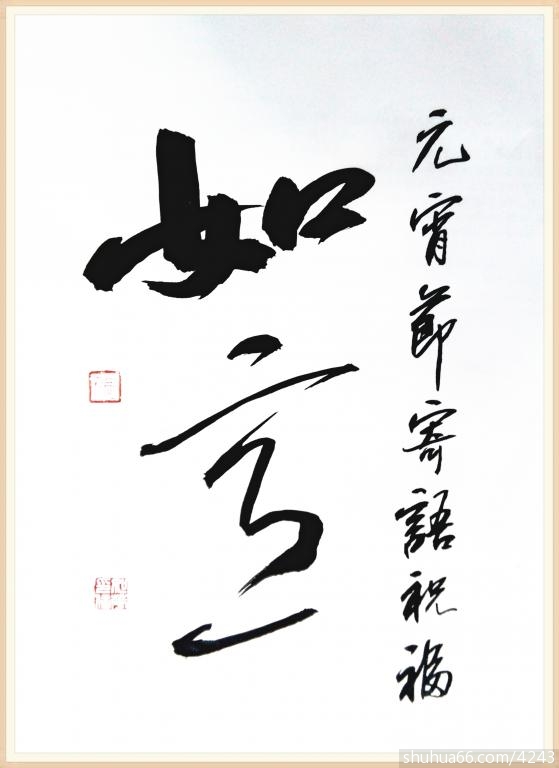 元宵節寄語祝福
如意
shuhua66.com/4243